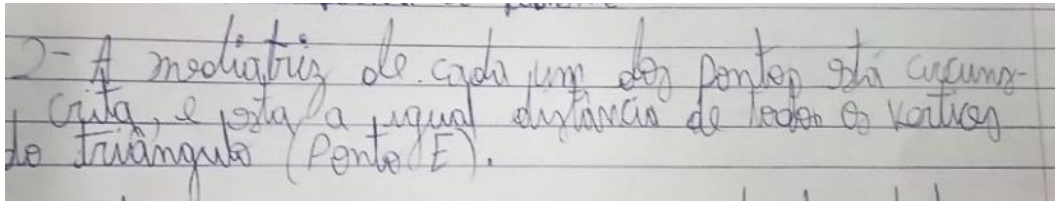 2- A mediatriz de cada um dos pontos está circuns-
crita, e esta a igual distância de todos os vertices
do triângulo (Ponto E).